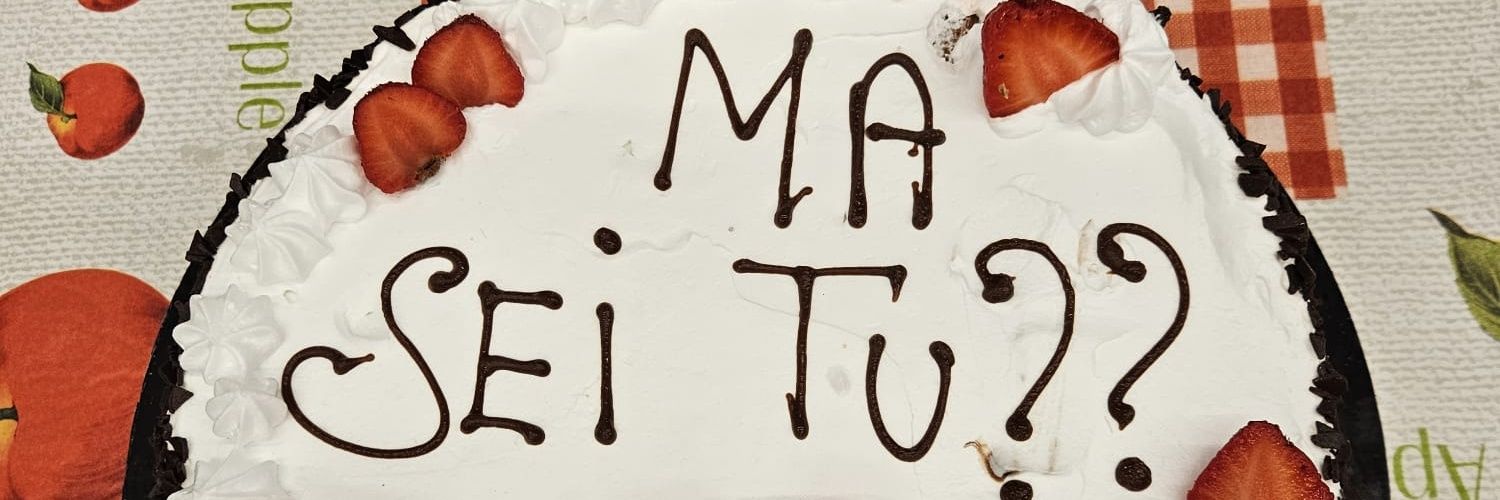 MA
SEi TU??
pple
Ap